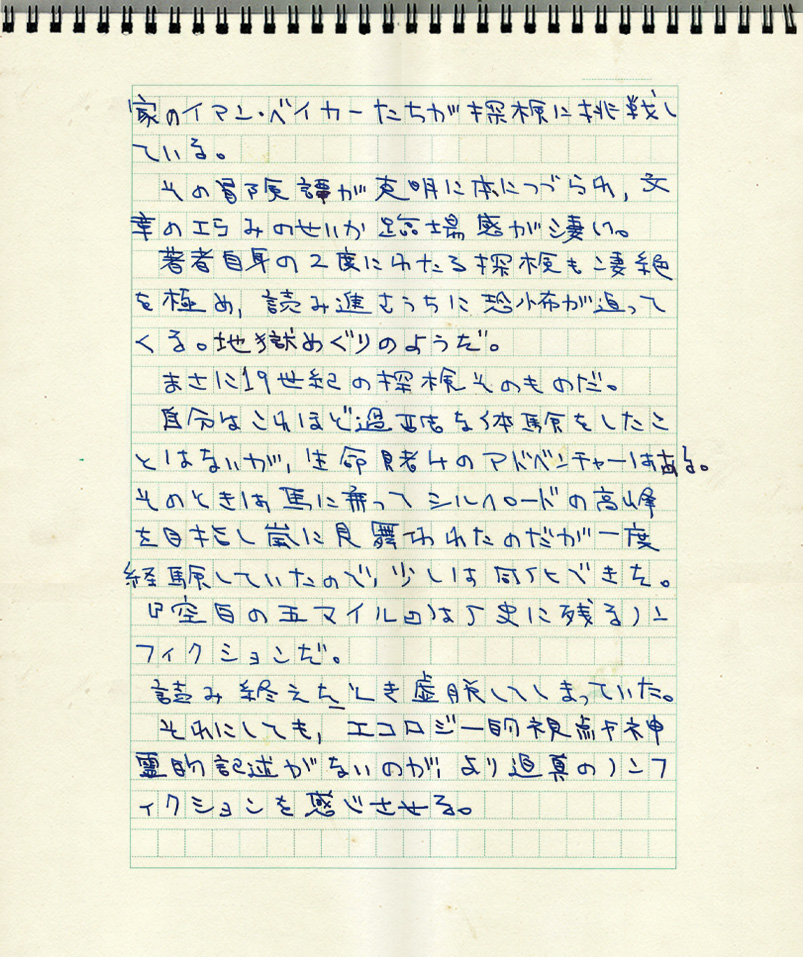 家のイアン・ベイカーたちが探検に挑戦し
ている。
その冒険譚が克明に本につづられ，文
章のエらみのせいか臨場感が凄い。
著者自身の2度にわたる探検も凄絶
を極め，読み進むうちに恐怖が迫って
くる。地獄めぐりのようだ。
まさに19世紀の探検そのものだ。
自分はこれほど過酷な体験をしたこ
とはないが，生命賭けのアドベンチャーはある。
そのときは馬に乗ってシルハロードの高峰
を目指し嵐に見舞われたのだが一度
経験していたので，少しは同化できた。
『空白の五マイル』は歴史に残るノン
フィクションだ。
読み終えたとき虚脱してしまっていた。
それにしても，エコロジー的視点や神
霊的記述がないのが，より迫真のノンフ
ィクションを感じさせる。